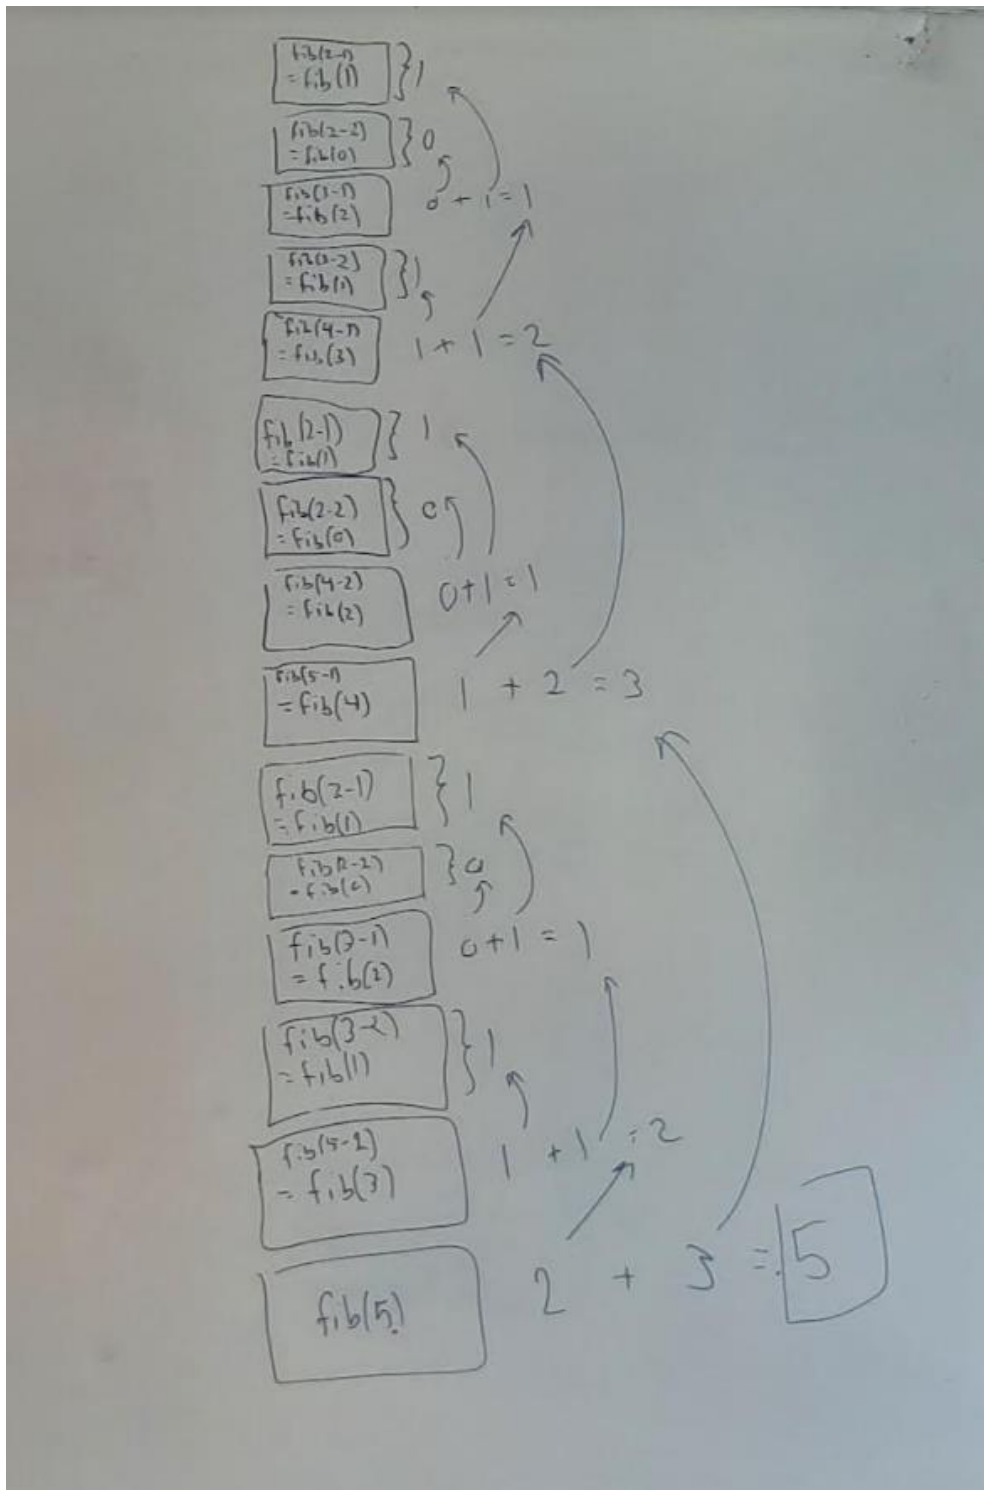 fib(2-1)
= fib(1) } 1
fib(2-2)
= fib(0) } 0
fib(3-1)
= fib(2) 0 + 1 = 1
fib(3-2)
= fib(1) } 1
fib(4-1)
= fib(3) 1 + 1 = 2
fib(2-1)
= fib(1) } 1
fib(2-2)
= fib(0) } 0
fib(4-2)
= fib(2) 0+1=1
fib(5-1)
= fib(4) 1 + 2 = 3
fib(2-1)
= fib(1) } 1
fib(2-2)
= fib(0) } 0
fib(3-1)
= fib(2) 0+1 = 1
fib(3-2)
= fib(1) } 1
fib(5-2)
= fib(3) 1 + 1 = 2
fib(5) 2 + 3 = 5